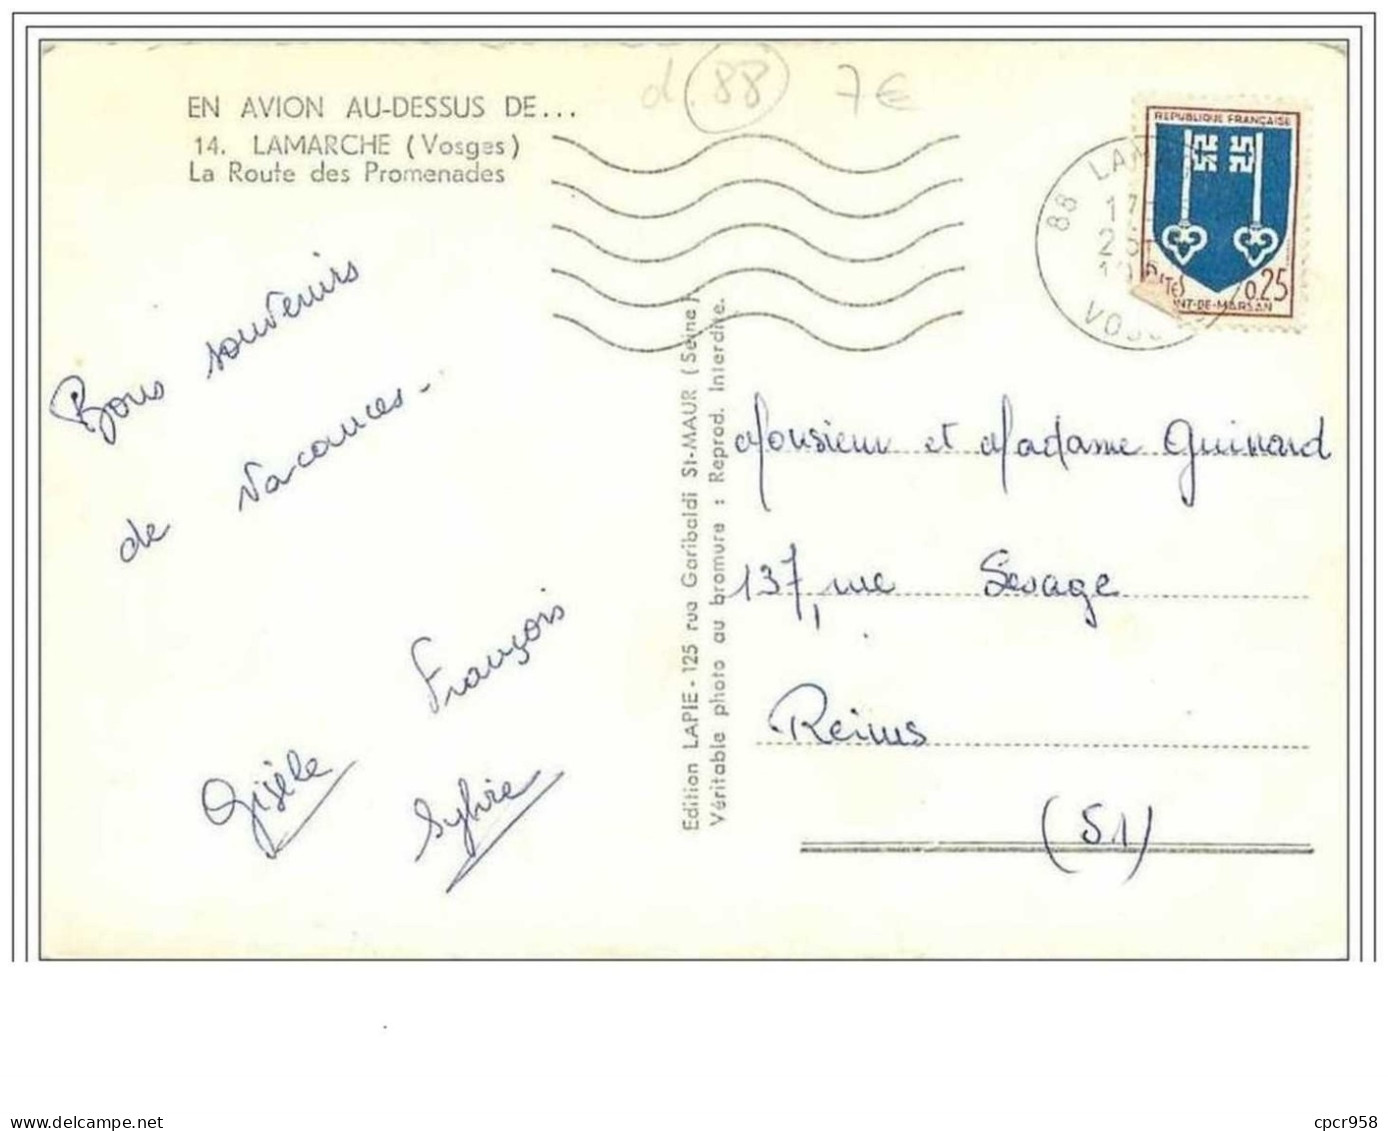 d. 88 7€
EN AVION AU-DESSUS DE...
14. LAMARCHE (Vosges)
La Route des Promenades
REPUBLIQUE FRANÇAISE
0,25
MONT-DE-MARSAN
88 LAM
17
VOS
Bons souvenirs
de vacances.
François
Gisèle
Sylvie
Edition LAPIE - 125 rue Garibaldi St-MAUR (Seine)
Véritable photo au bromure : Reprod. Interdite.
Monsieur et Madame Guinard
137, rue Lesage
Reims
(51)
cpcr958